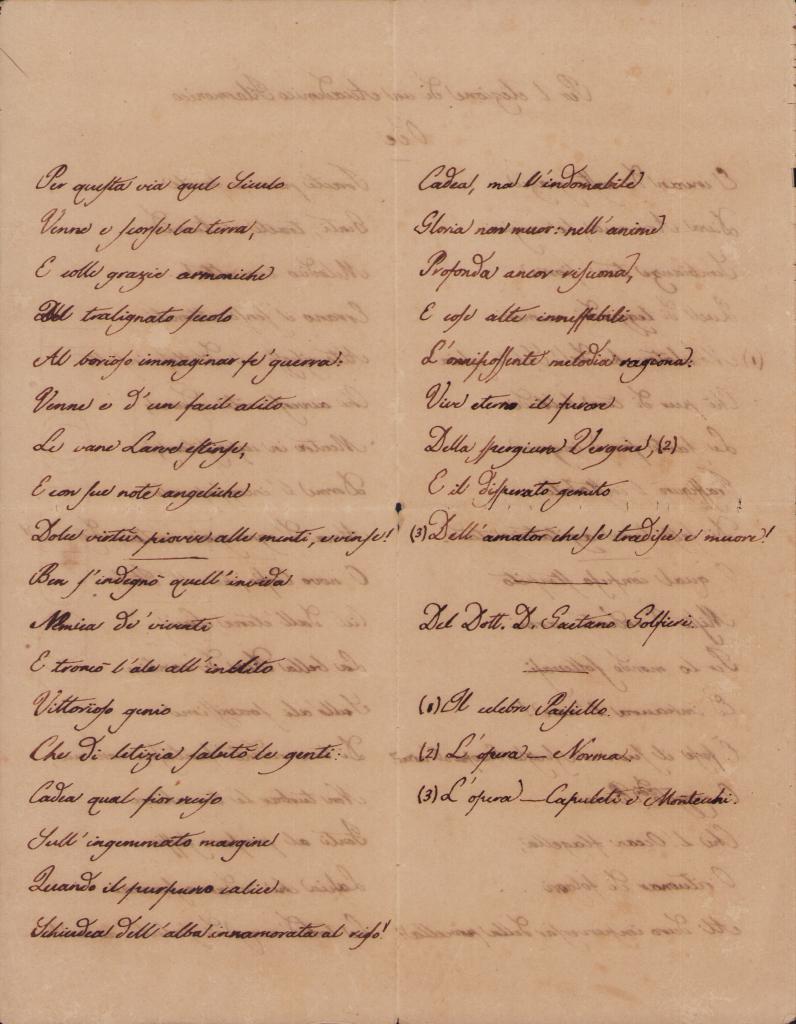 Per questa via quel Siculo
Venne e scorse la terra,
E colle grazie armoniche
Del tralignato secolo
Al borioso immaginar fe' guerra:
Venne e d'un facil alito
Le vane Larve estinse,
E con sue note angeliche
Dolce virtù piovve alle menti, e vinse!
Ben s'indegnò quell'invida
Nemica de' viventi
E troncò l'ale all'inclito
Vittorioso genio
Che di letizia salutò le genti:
Cadea qual fior reciso
Sull'ingemmato margine
Quando il purpureo calice
Schiudea dell'alba innamorata al riso!
Cadea, ma l'indomabile
Gloria non muor: nell'anime
Profonda ancor risuona,
E cose alte inneffabili
L'onnipossente melodia ragiona:
Vive eterno il furore
Della spergiura Vergine, (2)
E il disperato gemito
(3) Dell'amator che se tradisce e muore!
Del Dott. D. Gaetano Golfieri.
(1) Il celebre Paisiello.
(2) L'opera — Norma.
(3) L'opera — Capuleti e Montecchi.